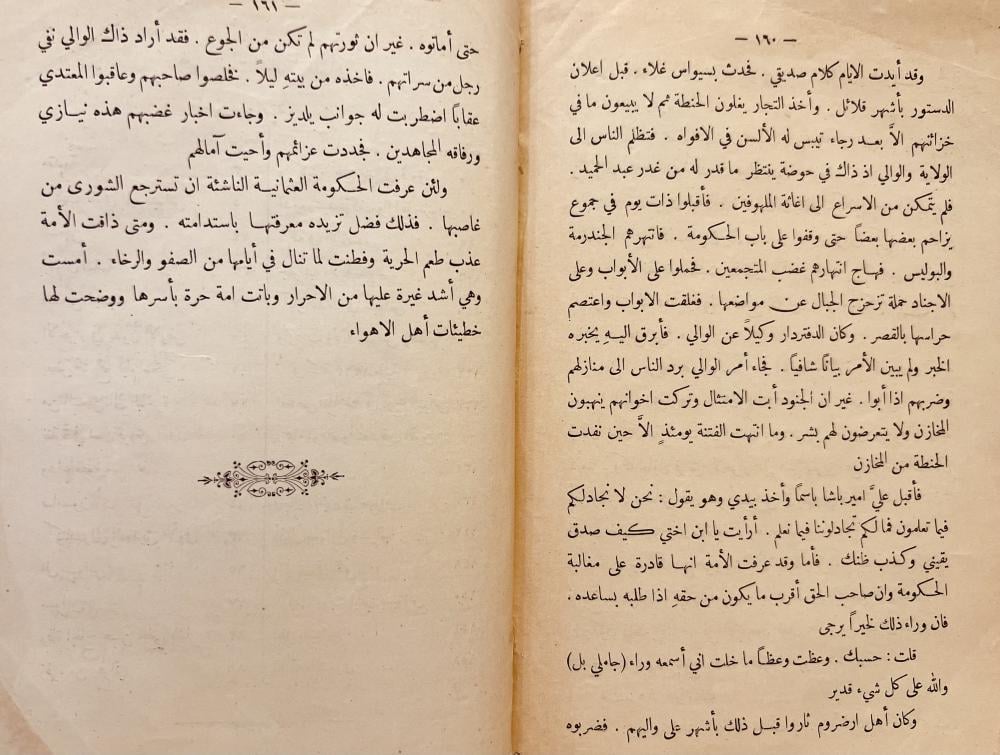 — ١٦٠ —
وقد أيدت الايام كلام صديقي . فحدث بسيواس غلاء . قبل اعلان
الدستور بأشهر قلائل . وأخذ التجار يغلون الحنطة ثم لا يبيعون ما في
خزائنهم الاَّ بعد رجاء تيبس له الألسن في الافواه . فتظلم الناس الى
الولاية والوالي اذ ذاك في حوضة ينتظر ما قدر له من غدر عبد الحميد .
فلم يتمكن من الاسراع الى اغاثة الملهوفين . فأقبلوا ذات يوم في جموع
يزاحم بعضها بعضاً حتى وقفوا على باب الحكومة . فانتهرهم الجندرمة
والبوليس . فهاج انتهارهم غضب المتجمعين . فحملوا على الأبواب وعلى
الاجناد حملة تزحزح الجبال عن مواضعها . فغلقت الابواب واعتصم
حراسها بالقصر . وكان الدفتردار وكيلاً عن الوالي . فأبرق اليهِ يخبره
الخبر ولم يبين الأمر بياناً شافياً . فجاء أمر الوالي برد الناس الى منازلهم
وضربهم اذا أبوا . غير ان الجنود أبت الامتثال وتركت اخوانهم ينهبون
المخازن ولا يتعرضون لهم بشر . وما انتهت الفتنة يومئذٍ الاَّ حين نفدت
الحنطة من المخازن
فأقبل عليَّ امير باشا باسماً وأخذ بيدي وهو يقول : نحن لا نجادلكم
فيما تعلمون فما لكم تجادلوننا فيما نعلم . أرأيت يا ابن اختي كيف صدق
يقيني وكذب ظنك . فأما وقد عرفت الأمة انها قادرة على مغالبة
الحكومة وان صاحب الحق أقرب ما يكون من حقهِ اذا طلبه بساعده .
فان وراء ذلك لخيراً يرجى
قلت : حسبك . وعظت وعظاً ما خلت اني أسمعه وراء (جاملي بل)
والله على كل شيء قدير
وكان أهل ارضروم ثاروا قبل ذلك بأشهر على واليهم . فضربوه
— ١٦١ —
حتى أماتوه . غير ان ثورتهم لم تكن من الجوع . فقد أراد ذاك الوالي نفي
رجل من سراتهم . فاخذه من بيتهِ ليلاً . فخلصوا صاحبهم وعاقبوا المعتدي
عقاباً اضطربت له جوانب يلديز . وجاءت اخبار غضبهم هذه نيازي
ورفاقه المجاهدين . فجددت عزائمهم وأحيت آمالهم
ولئن عرفت الحكومة العثمانية الناشئة ان تسترجع الشورى من
غاصبها . فذلك فضل تزيده معرفتها باستدامته . ومتى ذاقت الأمة
عذب طعم الحرية وفطنت لما تنال في أيامها من الصفو والرخاء . أمست
وهي أشد غيرة عليها من الاحرار وباتت امة حرة بأسرها ووضحت لها
خطيئات أهل الاهواء